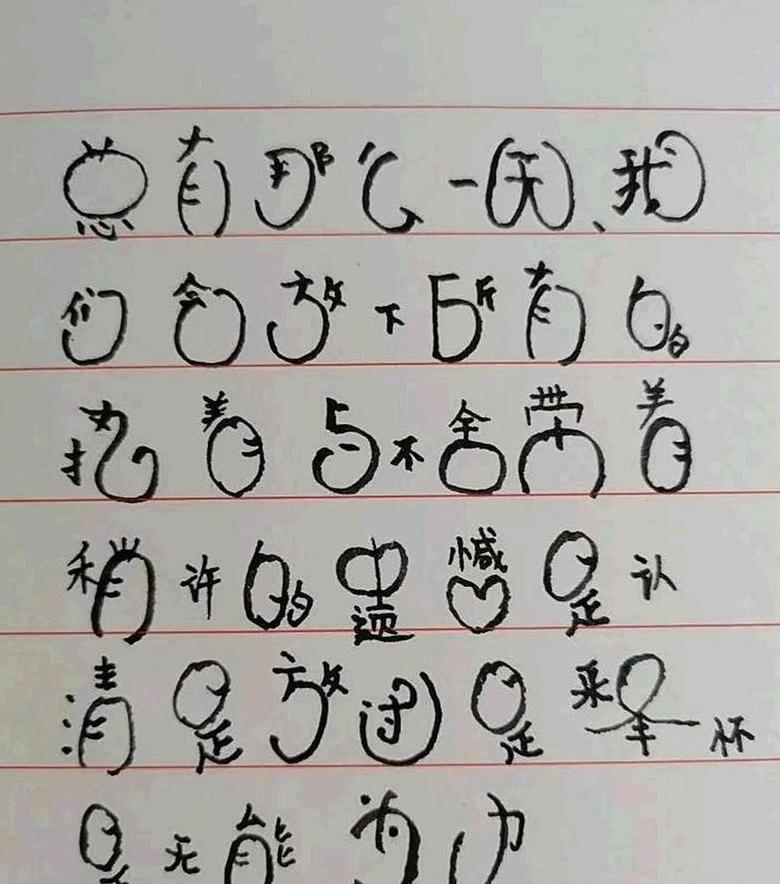 总有那么一天、我
们会放下所有的
执着与不舍带着
稍许的遗憾是认
清是放过是释怀
是无能为力